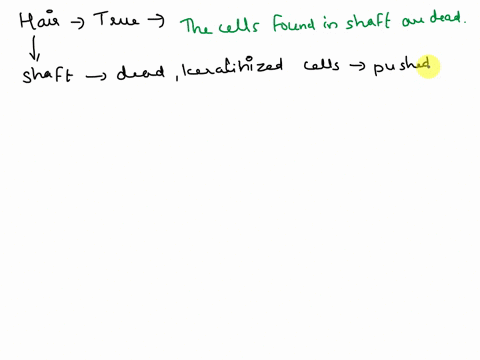 Hair → True → The cells found in shaft are dead.
shaft → dead, keratinized cells → pushed